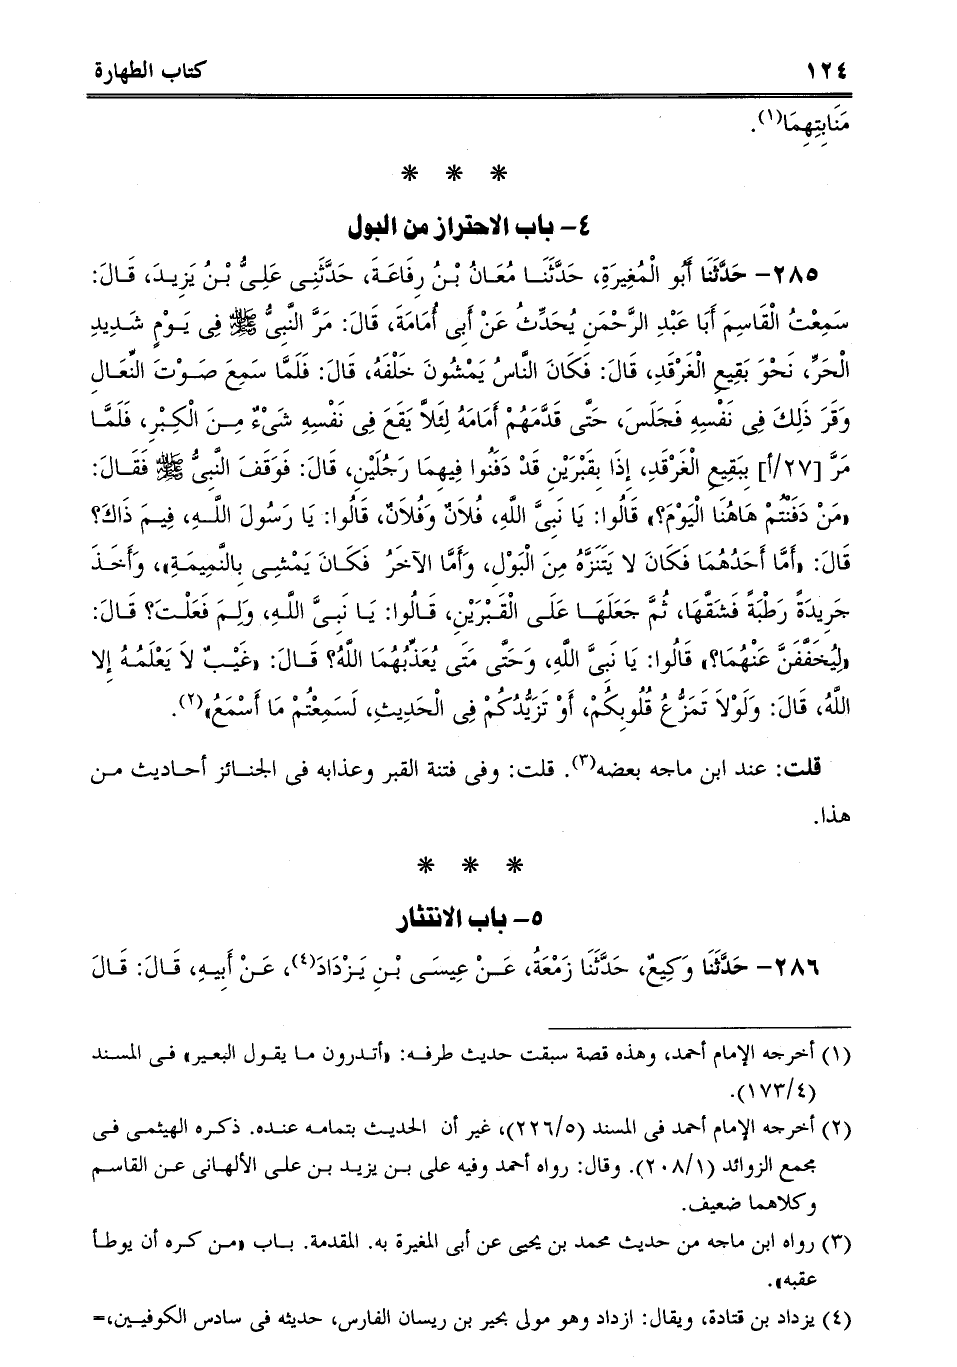 ١٢٤ كتاب الطهارة
مَنَابِتِهِمَا(١).
* * *
٤- باب الاحتراز من البول
٢٨٥- حَدَّثَنَا أَبُو الْمُغِيرَةِ، حَدَّثَنَا مُعَانُ بْنُ رِفَاعَةَ، حَدَّثَنِى عَلِىُّ بْنُ يَزِيدَ، قَالَ:
سَمِعْتُ الْقَاسِمَ أَبَا عَبْدِ الرَّحْمَنِ يُحَدِّثُ عَنْ أَبِى أُمَامَةَ، قَالَ: مَرَّ النَّبِىُّ ﷺ فِى يَوْمٍ شَدِيدِ
الْحَرِّ، نَحْوَ بَقِيعِ الْغَرْقَدِ، قَالَ: فَكَانَ النَّاسُ يَمْشُونَ خَلْفَهُ، قَالَ: فَلَمَّا سَمِعَ صَوْتَ النِّعَالِ
وَقَرَ ذَلِكَ فِى نَفْسِهِ فَجَلَسَ، حَتَّى قَدَّمَهُمْ أَمَامَهُ لِئَلاَّ يَقَعَ فِى نَفْسِهِ شَىْءٌ مِنَ الْكِبْرِ، فَلَمَّا
مَرَّ [٢٧/أ] بِبَقِيعِ الْغَرْقَدِ، إِذَا بِقَبْرَيْنِ قَدْ دَفَنُوا فِيهِمَا رَجُلَيْنِ، قَالَ: فَوَقَفَ النَّبِىُّ ﷺ فَقَالَ:
«مَنْ دَفَنْتُمْ هَاهُنَا الْيَوْمَ؟» قَالُوا: يَا نَبِىَّ اللَّهِ، فُلاَنٌ وَفُلاَنٌ، قَالُوا: يَا رَسُولَ اللَّهِ، فِيمَ ذَاكَ؟
قَالَ: «أَمَّا أَحَدُهُمَا فَكَانَ لا يَتَنَزَّهُ مِنَ الْبَوْلِ، وَأَمَّا الآخَرُ فَكَانَ يَمْشِى بِالنَّمِيمَةِ»، وَأَخَذَ
جَرِيدَةً رَطْبَةً فَشَقَّهَا، ثُمَّ جَعَلَهَا عَلَى الْقَبْرَيْنِ، قَالُوا: يَا نَبِىَّ اللَّهِ، وَلِمَ فَعَلْتَ؟ قَالَ:
«لِيُخَفَّفَنَّ عَنْهُمَا؟» قَالُوا: يَا نَبِىَّ اللَّهِ، وَحَتَّى مَتَى يُعَذِّبُهُمَا اللَّهُ؟ قَالَ: «غَيْبٌ لاَ يَعْلَمُهُ إِلا
اللَّهُ، قَالَ: وَلَوْلاَ تَمَزُّعُ قُلُوبِكُمْ، أَوْ تَزَيُّدُكُمْ فِى الْحَدِيثِ، لَسَمِعْتُمْ مَا أَسْمَعُ»(٢).
قلت: عند ابن ماجه بعضه(٣). قلت: وفى فتنة القبر وعذابه فى الجنائز أحاديث من
هذا.
* * *
٥- باب الانتثار
٢٨٦- حَدَّثَنَا وَكِيعٌ، حَدَّثَنَا زَمْعَةُ، عَنْ عِيسَى بْنِ يَزْدَادَ(٤)، عَنْ أَبِيهِ، قَالَ: قَالَ
(١) أخرجه الإمام أحمد، وهذه قصة سبقت حديث طرفه: «أتدرون ما يقول البعير» فى المسند
(١٧٣/٤).
(٢) أخرجه الإمام أحمد فى المسند (٢٢٦/٥)، غير أن الحديث بتمامه عنده. ذكره الهيثمى فى
مجمع الزوائد (٢٠٨/١). وقال: رواه أحمد وفيه على بن يزيد بن على الألهانى عن القاسم
وكلاهما ضعيف.
(٣) رواه ابن ماجه من حديث محمد بن يحيى عن أبى المغيرة به. المقدمة. باب «من كره أن يوطأ
عقبه».
(٤) يزداد بن قتادة، ويقال: ازداد وهو مولى بحير بن ريسان الفارس، حديثه فى سادس الكوفيين،=